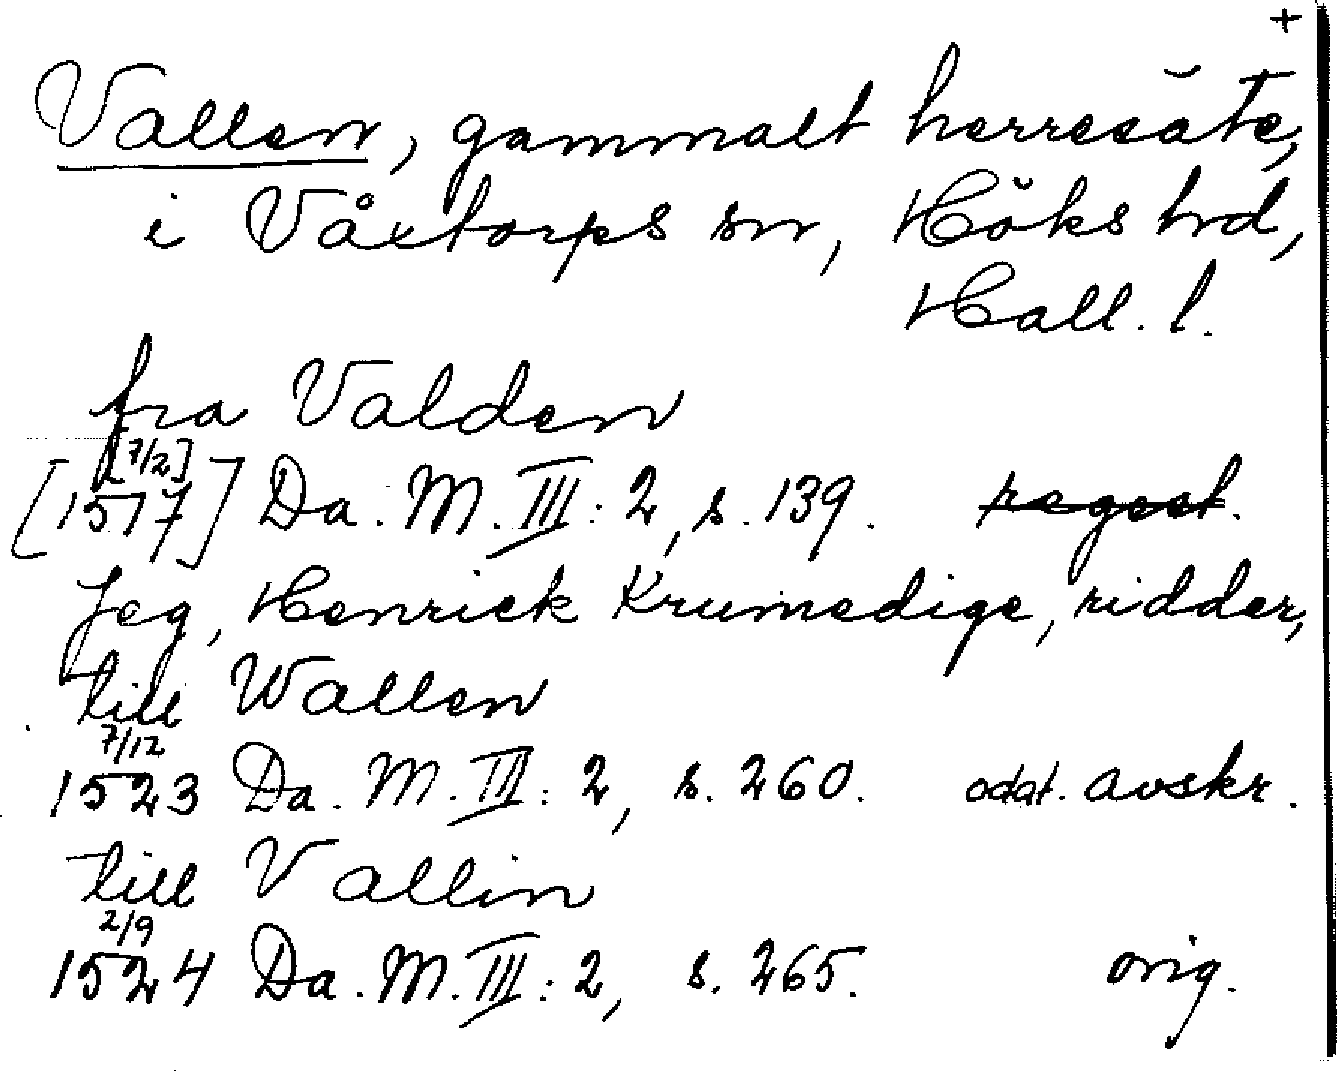 +
Vallen, gammalt herresäte,
i Våxtorps sn, Höks hrd,
Hall. l.
fra Valden
[7/2]
[1517] Da. M. III: 2, s. 139. regest.
Jeg, Henrick Krumedige, ridder,
till Wallen
7/12
1523 Da. M. III: 2, s. 260. odat. avskr.
till Vallin
2/9
1524 Da. M. III: 2, s. 265. orig.